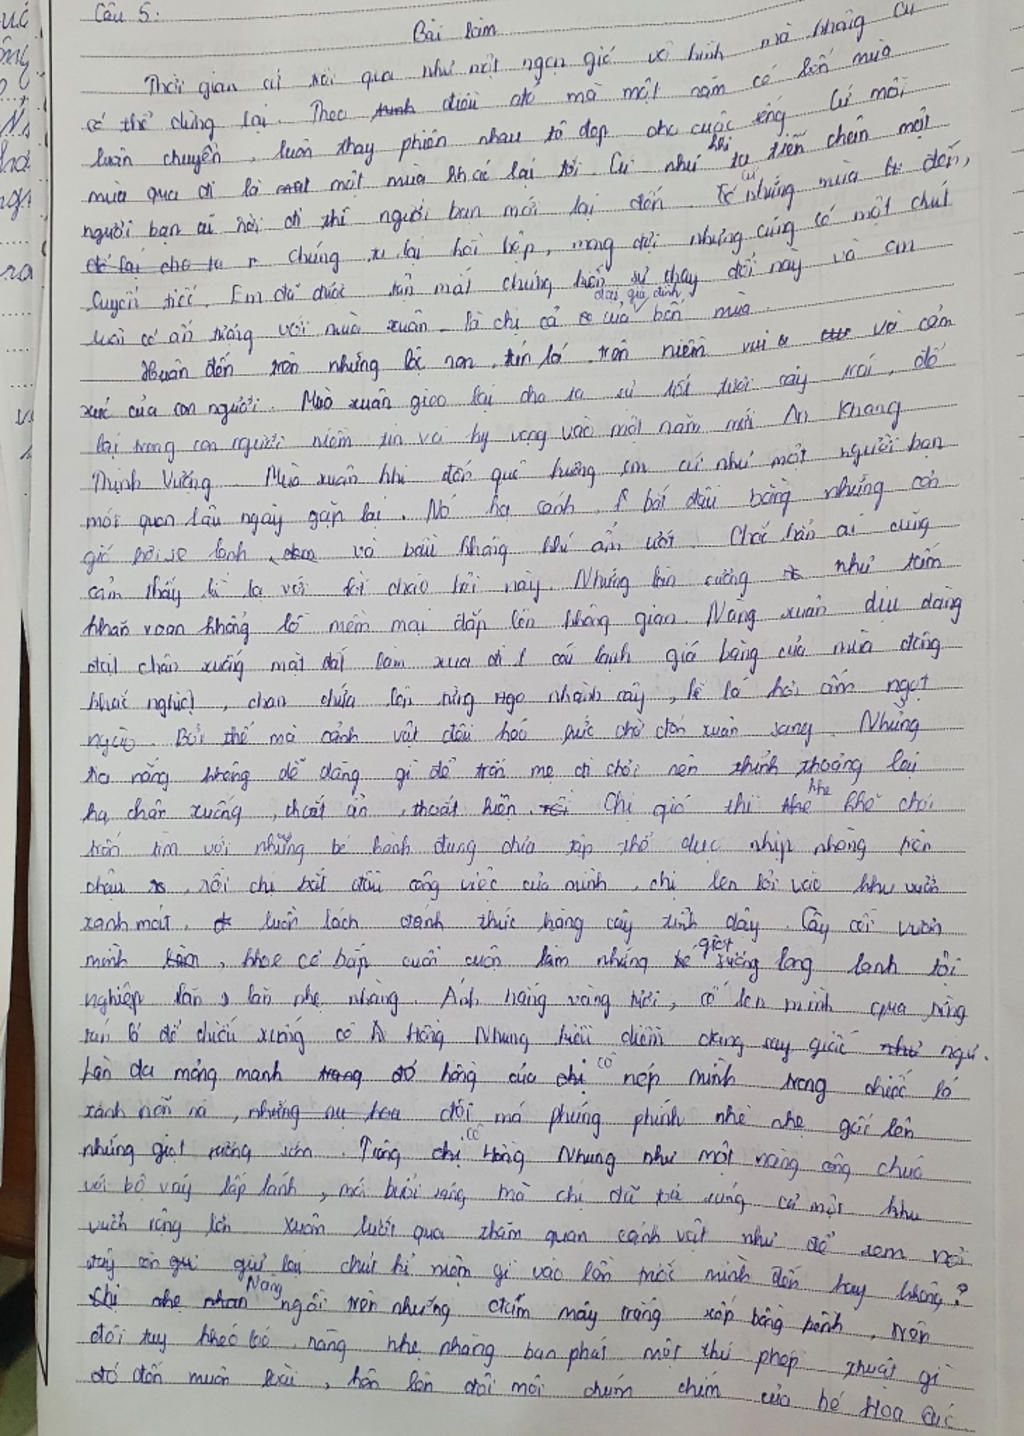 Câu 5:
Bài làm
Thời gian cứ trôi qua như một ngọn gió vô hình mà không
có thể dừng lại. Theo điều đó mà một năm có bốn mùa
luân chuyển, luôn thay phiên nhau tô đẹp cho cuộc sống. Cứ mỗi
mùa qua đi là một mùa khác lại tới. Cứ như khi ta tiễn chân một
người bạn cũ rời đi thì người bạn mới lại đến. những mùa đến,
chúng ta lại hồi hộp, mong đợi nhưng cũng có một chút
luyến tiếc. Em đã được tận mắt chứng kiến sự thay đổi này và em
luôn có ấn tượng với mùa xuân - là chị cả của đại gia đình bốn mùa
Xuân đến trên những lộc non, tán lá, trên niềm vui và cảm
xúc của con người. Mùa xuân gieo lại cho ta sự tốt tươi cây trái, để
lại trong con người niềm tin và hy vọng vào một năm mới An Khang
Thịnh Vượng. Mùa xuân khi đến quê hương em cứ như một người bạn
mới quen lâu ngày gặp lại. Nó hạ cánh bắt đầu bằng những cơn
gió hơi se lạnh, và bầu không khí ẩm ướt. Chắc hẳn ai cũng
cảm thấy kì lạ với lời chào hỏi này. Những làn sương như tấm
khăn voan khổng lồ mềm mại đắp lên không gian. Nàng xuân dịu dàng
đặt chân xuống mặt đất làm xua đi cái lạnh giá băng của mùa đông
khắc nghiệt, chan chứa lên từng ngọn nhành cây, kẽ lá hơi ấm ngọt
ngào. Bởi thế mà cảnh vật đều háo hức chờ đón xuân sang. Những
tia nắng không dễ dàng gì để trốn mẹ đi chơi nên thỉnh thoảng lại
hạ chân xuống, thoắt ẩn, thoắt hiện. Chị gió thì khe khẽ chơi
trốn tìm với những bé hành đung đưa tập thể dục nhịp nhàng trên
chậu, rồi chị bắt đầu công việc của mình, chị len lỏi vào khu vườn
xanh mát, luồn lách đánh thức hàng cây tỉnh dậy. Cây cối vươn
mình, khoe cơ bắp cuồn cuộn làm những giọt sương long lanh tội
nghiệp lăn nhẹ nhàng. Ánh nắng vàng tươi, cố len mình qua từng
tán lá để chiếu xuống cô Hồng Nhung kiều diễm đang say giấc ngủ.
Làn da mỏng manh đỏ hồng của cô nép mình trong chiếc lá
xanh nõn nà, đôi má phúng phính nhè nhẹ gối lên
những giọt sương sớm. Trông cô Hồng Nhung như một nàng công chúa
với bộ váy lấp lánh, mới buổi sáng mà chị đã toả sáng cả một khu
vườn rộng lớn. Xuân lướt qua thăm quan cảnh vật như để xem nơi
đây còn giữ lại chút kỉ niệm gì vào lần trước mình đến hay không?
Nàng ngồi trên những đám mây trắng xốp bồng bềnh, trên
đôi tay khéo léo, nàng nhẹ nhàng ban phát một thứ phép thuật gì
đó đến muôn loài, hôn lên đôi môi chúm chím của bé Hoa Cúc